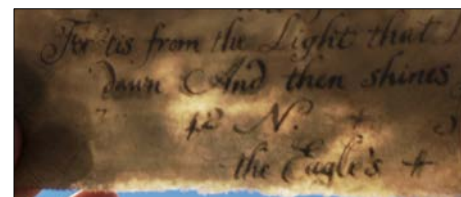 For 'tis from the Light that
dawn And then shines
N.
the Eagle's